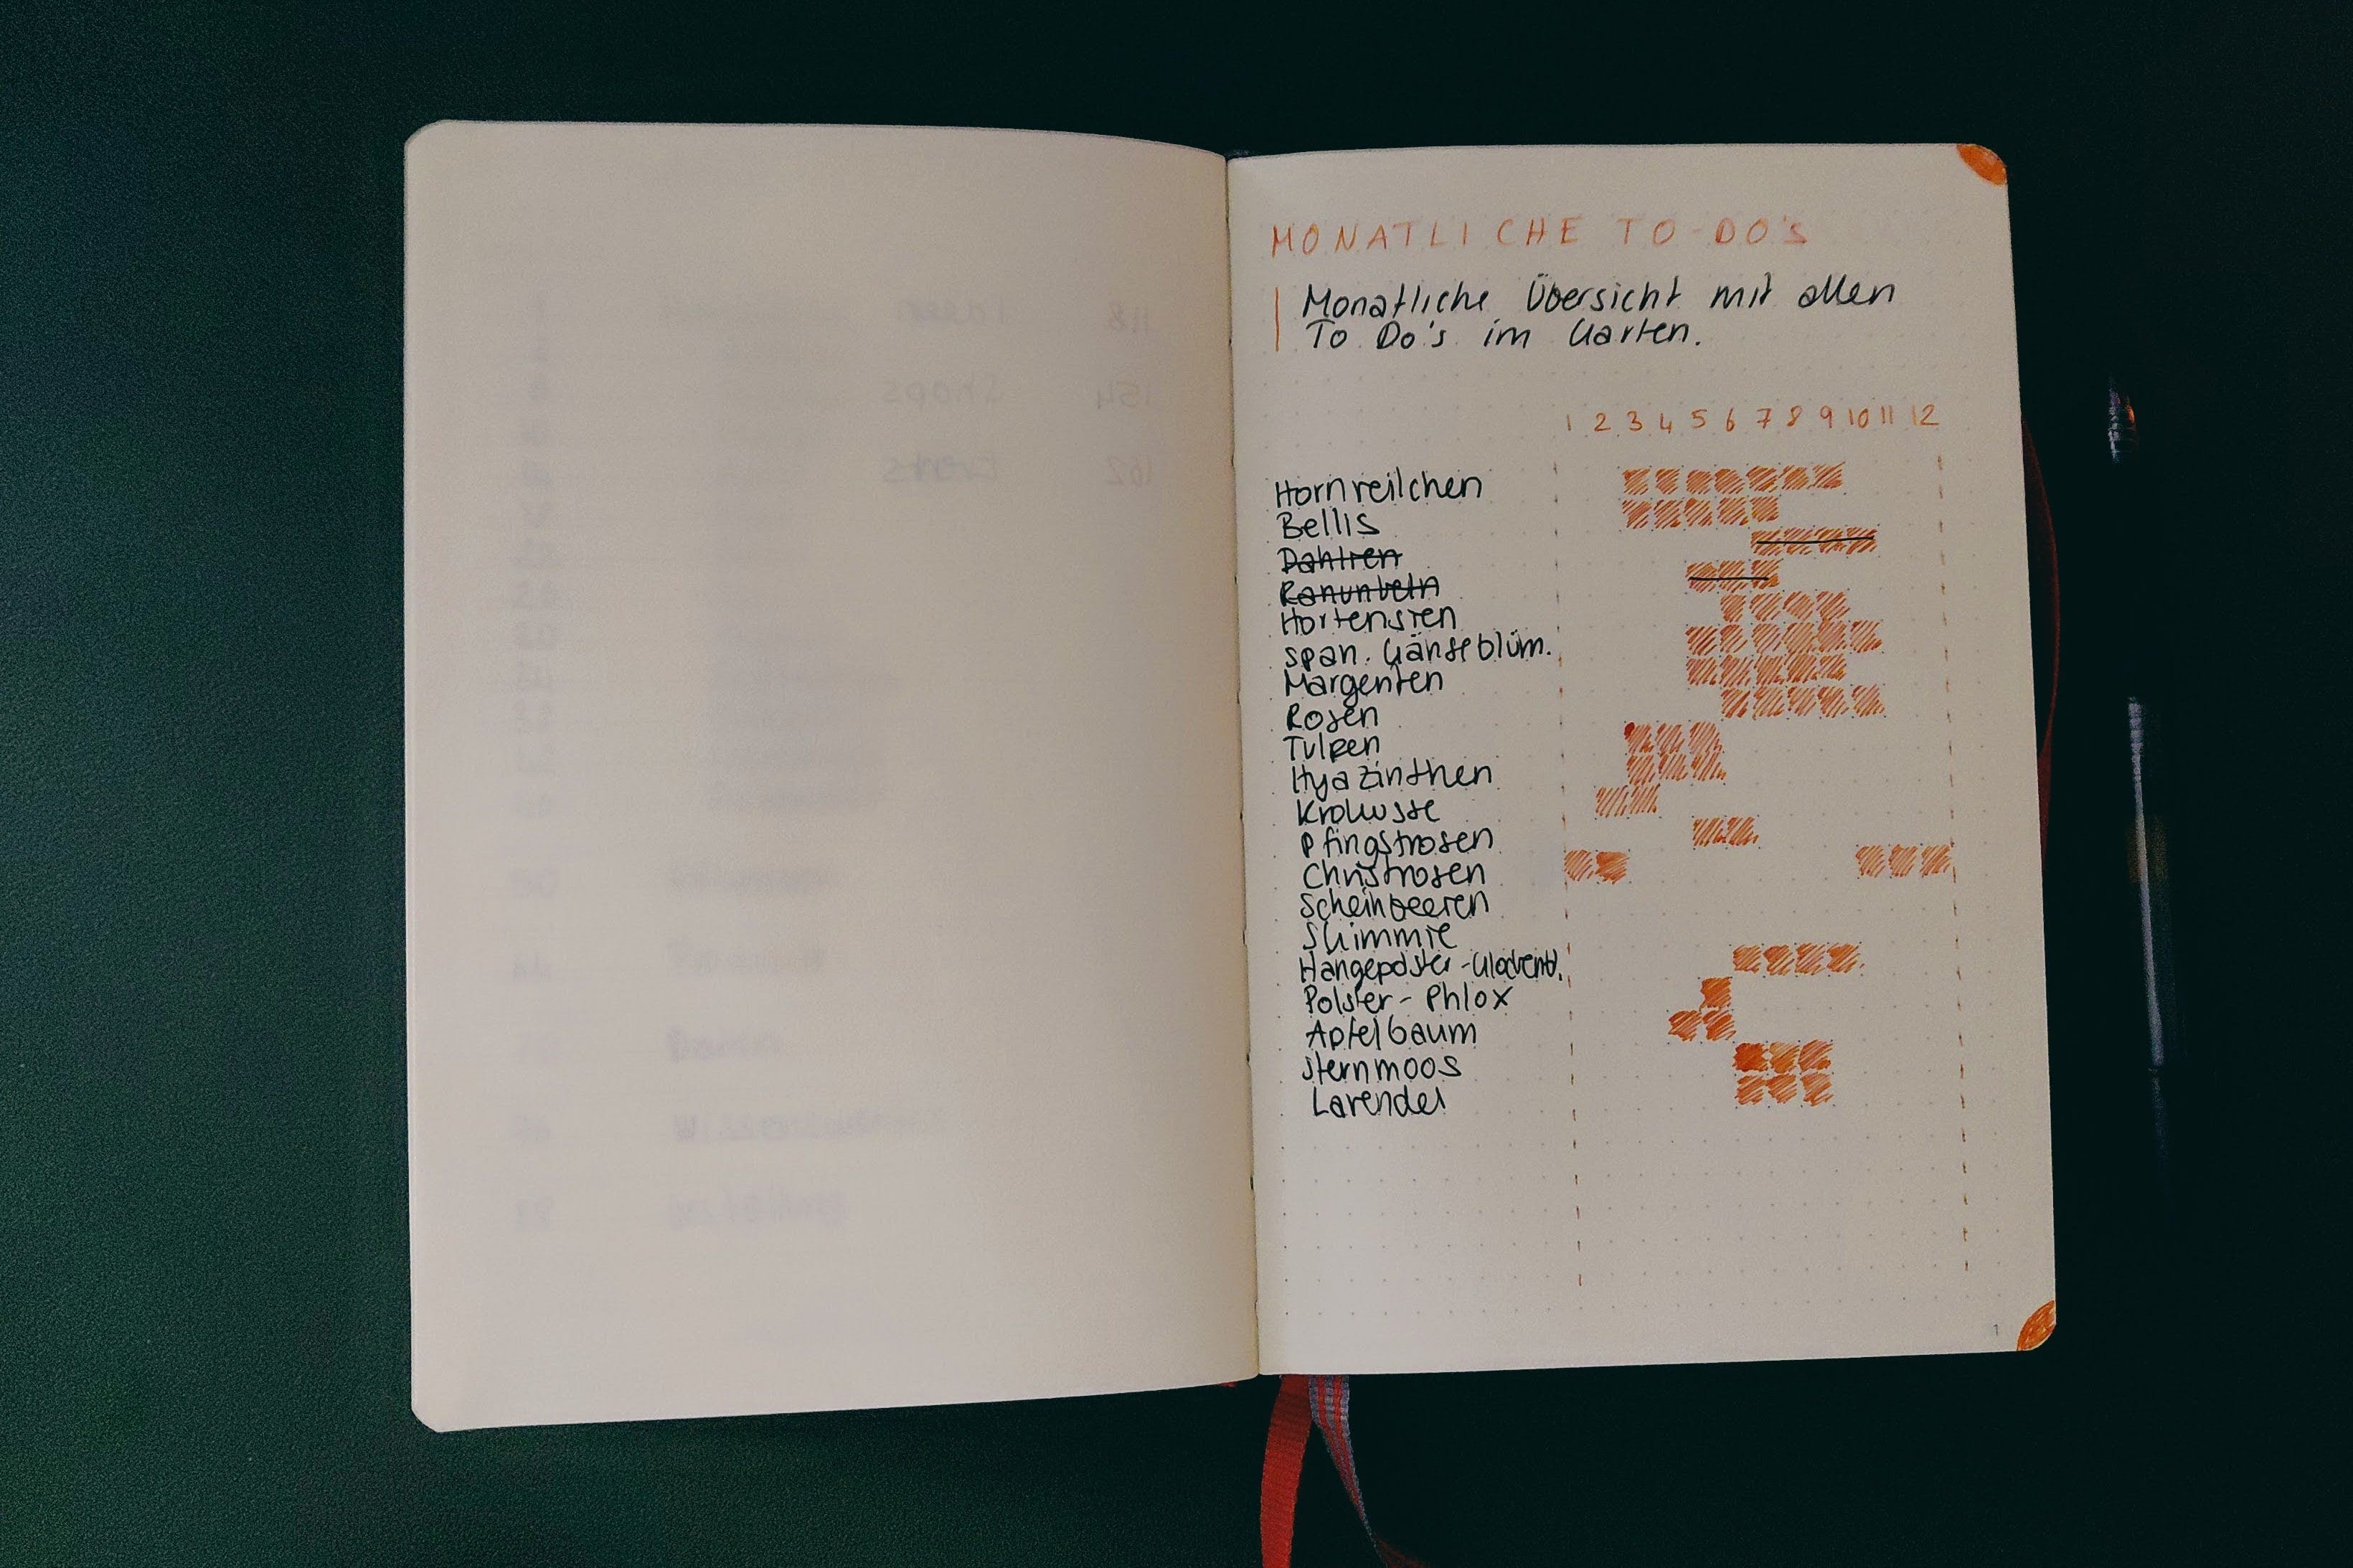 MONATLICHE TO-DO'S
Monatliche Übersicht mit allen
To Do's im Garten.
1 2 3 4 5 6 7 8 9 10 11 12
Hornveilchen
Bellis
Dahlien
Ranunkeln
Hortensien
span. Gänseblüm.
Margeriten
Rosen
Tulpen
Hyazinthen
Krokusse
Pfingstrosen
Christrosen
Scheinbeeren
Skimmie
Hängepolster-Glockenbl.
Polster-Phlox
Apfelbaum
Sternmoos
Lavendel
1